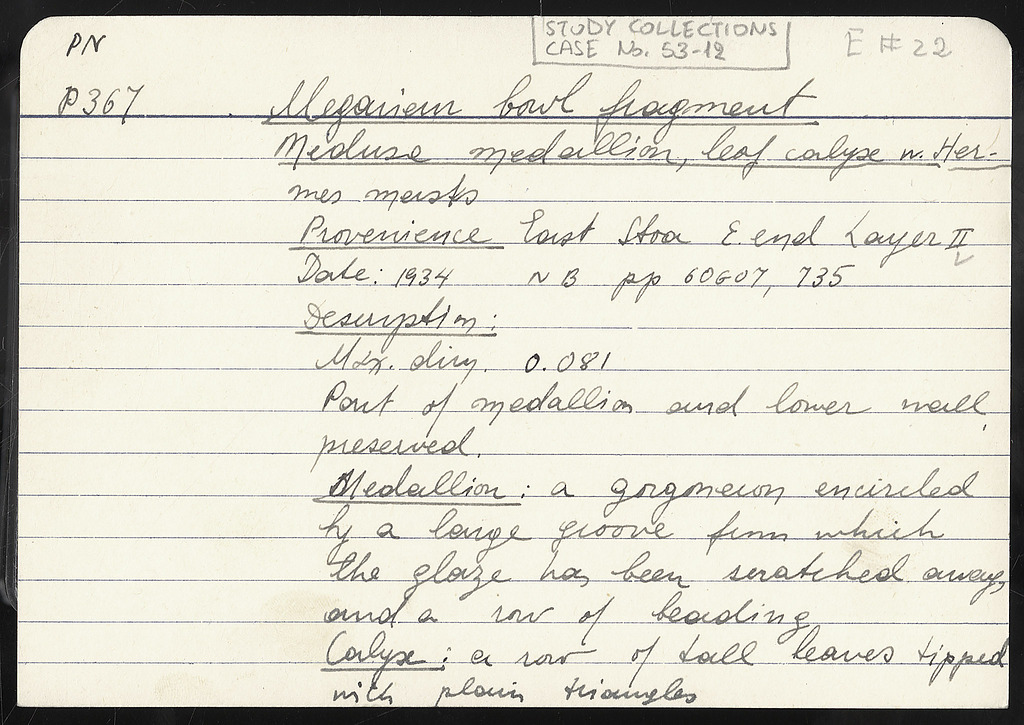 PN
STUDY COLLECTIONS
CASE No. 53-12
E # 22
P367 Megarian bowl fragment
Medusa medallion, leaf calyx w. Her-
mes masks
Provenience East Stoa E. end Layer II
Date: 1934 NB pp 60607, 735
Description:
Max. dim. 0.081
Part of medallion and lower wall
preserved.
Medallion: a gorgoneion encircled
by a large groove from which
the glaze has been scratched away,
and a row of beading
Calyx: a row of tall leaves tipped
with plain triangles